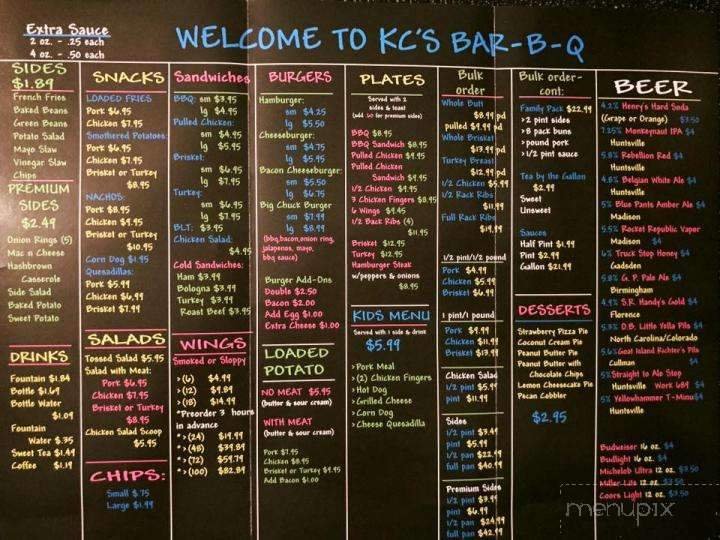 Extra Sauce
2 oz. - .25 each
4 oz. - .50 each
WELCOME TO KC'S BAR-B-Q
SIDES
$1.89
French Fries
Baked Beans
Green Beans
Potato Salad
Mayo Slaw
Vinegar Slaw
Chips
PREMIUM
SIDES
$2.49
Onion Rings (5)
Mac n Cheese
Hashbrown
Casserole
Side Salad
Baked Potato
Sweet Potato
DRINKS
Fountain $1.84
Bottle $1.69
Bottle Water
$1.09
Fountain
Water $.35
Sweet Tea $1.49
Coffee $1.19
SNACKS
LOADED FRIES
Pork $6.95
Chicken $7.95
Smothered Potatoes:
Pork $6.95
Chicken $7.95
Brisket or Turkey
$8.95
NACHOS:
Pork $8.95
Chicken $9.95
Brisket or Turkey
$10.95
Corn Dog $1.95
Quesadillas:
Pork $5.99
Chicken $6.99
Brisket $7.99
SALADS
Tossed Salad $5.95
Salad with Meat:
Pork $6.95
Chicken $7.95
Brisket or Turkey
$8.95
Chicken Salad Scoop
$5.95
CHIPS:
Small $.75
Large $1.99
Sandwiches
BBQ: sm $3.95
lg $4.95
Pulled Chicken:
sm $4.95
lg $5.95
Brisket:
sm $6.95
lg $7.95
Turkey:
sm $6.95
lg $7.95
BLT: $3.95
Chicken Salad:
$4.95
Cold Sandwiches:
Ham $3.99
Bologna $3.99
Turkey $3.99
Roast Beef $3.95
WINGS
Smoked or Sloppy
>(6) $4.99
>(12) $9.89
>(18) $14.99
*Preorder 3 hours
in advance
*>(24) $19.99
*>(48) $39.89
*>(72) $59.79
*>(100) $82.89
BURGERS
Hamburger:
sm $4.25
lg $5.50
Cheeseburger:
sm $4.75
lg $5.95
Bacon Cheeseburger:
sm $5.50
lg $6.75
Big Chuck Burger
sm $7.99
lg $8.99
(bbq,bacon,onion ring,
jalapenos, mayo,
bbq sauce)
Burger Add-Ons
Double $2.50
Bacon $2.00
Add Egg $1.00
Extra Cheese $1.00
LOADED
POTATO
NO MEAT $5.95
(butter & sour cream)
WITH MEAT
(butter & sour cream)
Pork $7.95
Chicken $8.95
Brisket or Turkey $9.95
Add Bacon $1.00
PLATES
Served with 2
sides & toast
(add .60 for premium sides)
BBQ $8.95
BBQ Sandwich $8.95
Pulled Chicken $9.95
Pulled Chicken
Sandwich $9.95
1/2 Chicken $9.95
3 Chicken Fingers $8.95
6 Wings $9.45
1/2 Back Ribs (4)
$11.95
Brisket $12.95
Turkey $12.95
Hamburger Steak
w/peppers & onions
$8.95
KIDS MENU
Served with 1 side & drink
$5.99
>Pork Meal
>(2) Chicken Fingers
>Hot Dog
>Grilled Cheese
>Corn Dog
>Cheese Quesadilla
Bulk
order
Whole Butt
$8.99 pd
pulled $9.99 pd
Whole Brisket
$13.99 pd
Turkey Breast
$12.99 pd
1/2 Chicken $5.99
1/2 Rack Ribs
$11.99
Full Rack Ribs
$19.99
1/2 pint/1/2 pound
Pork $4.99
Chicken $5.99
Brisket $6.99
1 pint/1 pound
Pork $9.99
Chicken $11.99
Brisket $13.99
Chicken Salad
1/2 pint $5.99
pint $11.99
Sides
1/2 pint $3.49
pint $5.99
1/2 pan $22.99
full pan $40.99
Premium Sides
1/2 pint $3.99
pint $6.99
1/2 pan $24.99
full pan $42.99
Bulk order-
cont:
Family Pack $22.99
>2 pint sides
>8 pack buns
>pound pork
>1/2 pint sauce
Tea by the Gallon
$2.99
Sweet
Unsweet
Sauces
Half Pint $1.99
Pint $2.99
Gallon $21.99
DESSERTS
Strawberry Pizza Pie
Coconut Cream Pie
Peanut Butter Pie
Peanut Butter with
Chocolate Chips
Lemon Cheesecake Pie
Pecan Cobbler
$2.95
BEER
4.2% Henry's Hard Soda
(Grape or Orango) $3.50
7.25% Monkeynaut IPA $4
Huntsville
5.8% Rebellion Red $4
Huntsville
4.8% Belgian White Ale $4
Huntsville
5% Blue Pants Amber Ale $4
Madison
5.5% Rocket Republic Vapor
Madison $4
6% Truck Stop Honey $4
Gadsden
5.8% G. P. Ale $4
Birmingham
4.9% S.R. Handy's Gold $4
Florence
5.3% O.B. Little Yella Pils $4
North Carolina/Colorado
5.6% Goat Island Richter's Pils
Cullman $4
5% Straight to Ale Stop
Huntsville Work 689 $4
5% Yellowhammer T-Minus $4
Huntsville
Budweiser 16 oz. $4
Budlight 16 oz. $4
Michelob Ultra 12 oz. $3.50
Miller Lite 12 oz. $3.50
Coors Light 12 oz. $3.50
menupix